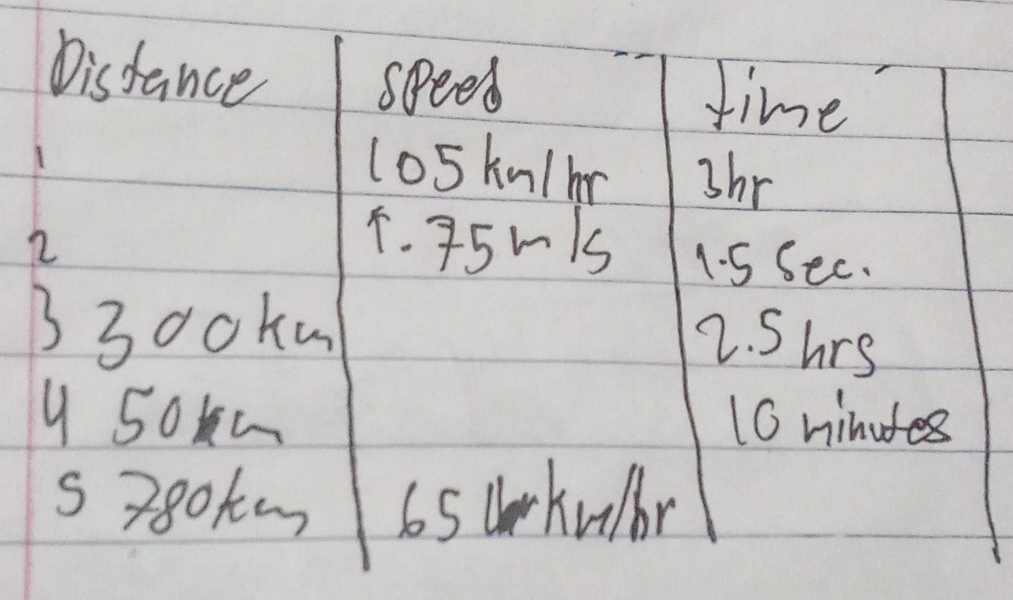 Distance speed time
1 105 km/hr 3hr
2 1.75 m/s 1.5 Sec.
3 300km 2.5 hrs
4 50km 10 minutes
5 780km 65 km/hr